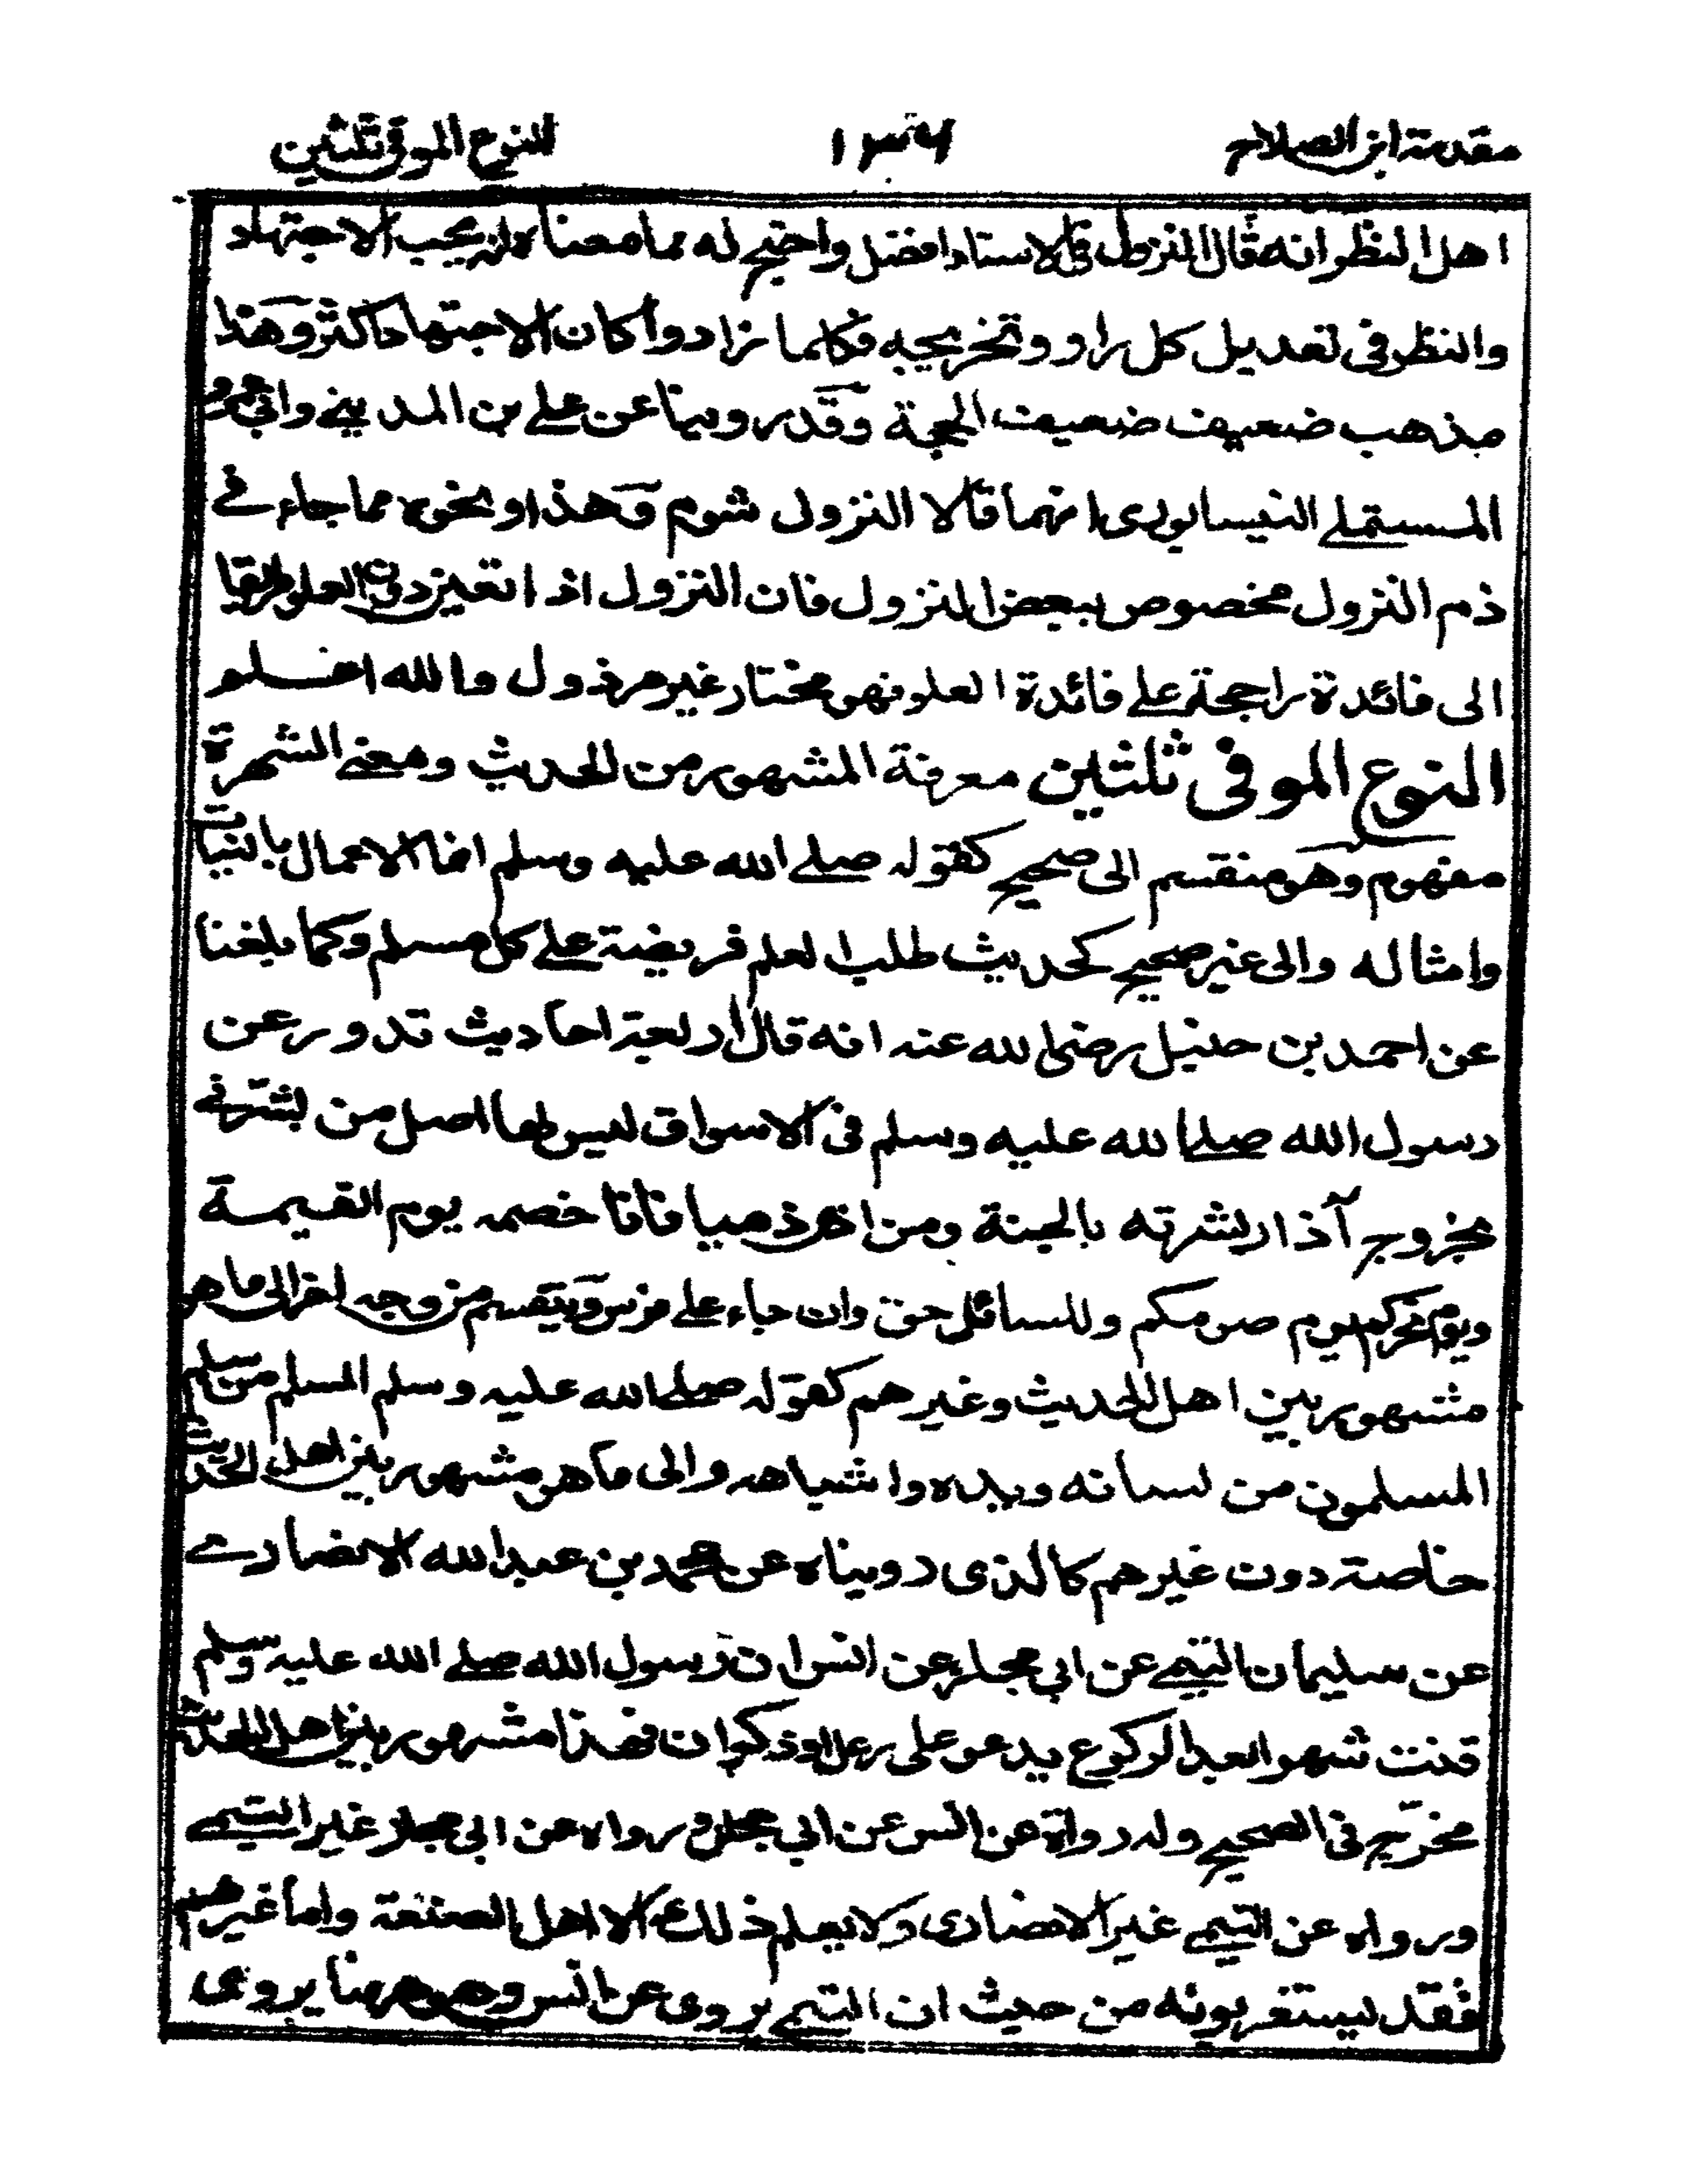 مقدمة ابن الصلاح ١٣٦ النوع الموفي ثلثين
اهل النظر انه قال النزول في الاسناد افضل واحتج له بما معناه انه يجب الاجتهاد
والنظر في تعديل كل راو وتخريجه فكلما زادوا كان الاجتهاد اكثر وهذا
مذهب ضعيف ضعيف الحجة وقد روينا عن علي بن المديني وابي عمرو
المستملي النيسابوري انهما قالا النزول شوم وهذا ونحوه مما جاء في
ذم النزول مخصوص ببعض النزول فان النزول اذا تعين دون العلو طريقا
الى فائدة راجحة على فائدة العلو فهو مختار غير مرذول والله اعلم
النوع الموفي ثلثين معرفة المشهور من الحديث ومعنى الشهرة
مفهوم وهو منقسم الى صحيح كقوله صلى الله عليه وسلم انما الاعمال بالنيات
وامثاله والى غير صحيح كحديث طلب العلم فريضة على كل مسلم وكما بلغنا
عن احمد بن حنبل رضي الله عنه انه قال اربعة احاديث تدور عن
رسول الله صلى الله عليه وسلم في الاسواق ليس لها اصل من بشرني
بخروج آذار بشرته بالجنة ومن اذى ذميا فانا خصمه يوم القيمة
ويوم نحركم يوم صومكم وللسائل حق وان جاء على فرس وينقسم من وجه اخر الى ما هو
مشهور بين اهل الحديث وغيرهم كقوله صلى الله عليه وسلم المسلم من سلم
المسلمون من لسانه ويده واشباهه والى ما هو مشهور بين اهل الحديث
خاصة دون غيرهم كالذي رويناه عن محمد بن عبد الله الانصاري
عن سليمان التيمي عن ابي مجلز عن انس ان رسول الله صلى الله عليه وسلم
قنت شهرا بعد الركوع يدعو على رعل وذكوان فهذا مشهور بين اهل الحديث
مخرج في الصحيح وله رواة عن انس عن ابي مجلز ورواه عن ابي مجلز غير التيمي
ورواه عن التيمي غير الانصاري ولا يعلم ذلك الا اهل الصنعة واما غيرهم
فقد يستغربونه من حيث ان التيمي يروي عن انس وهو ههنا يروي